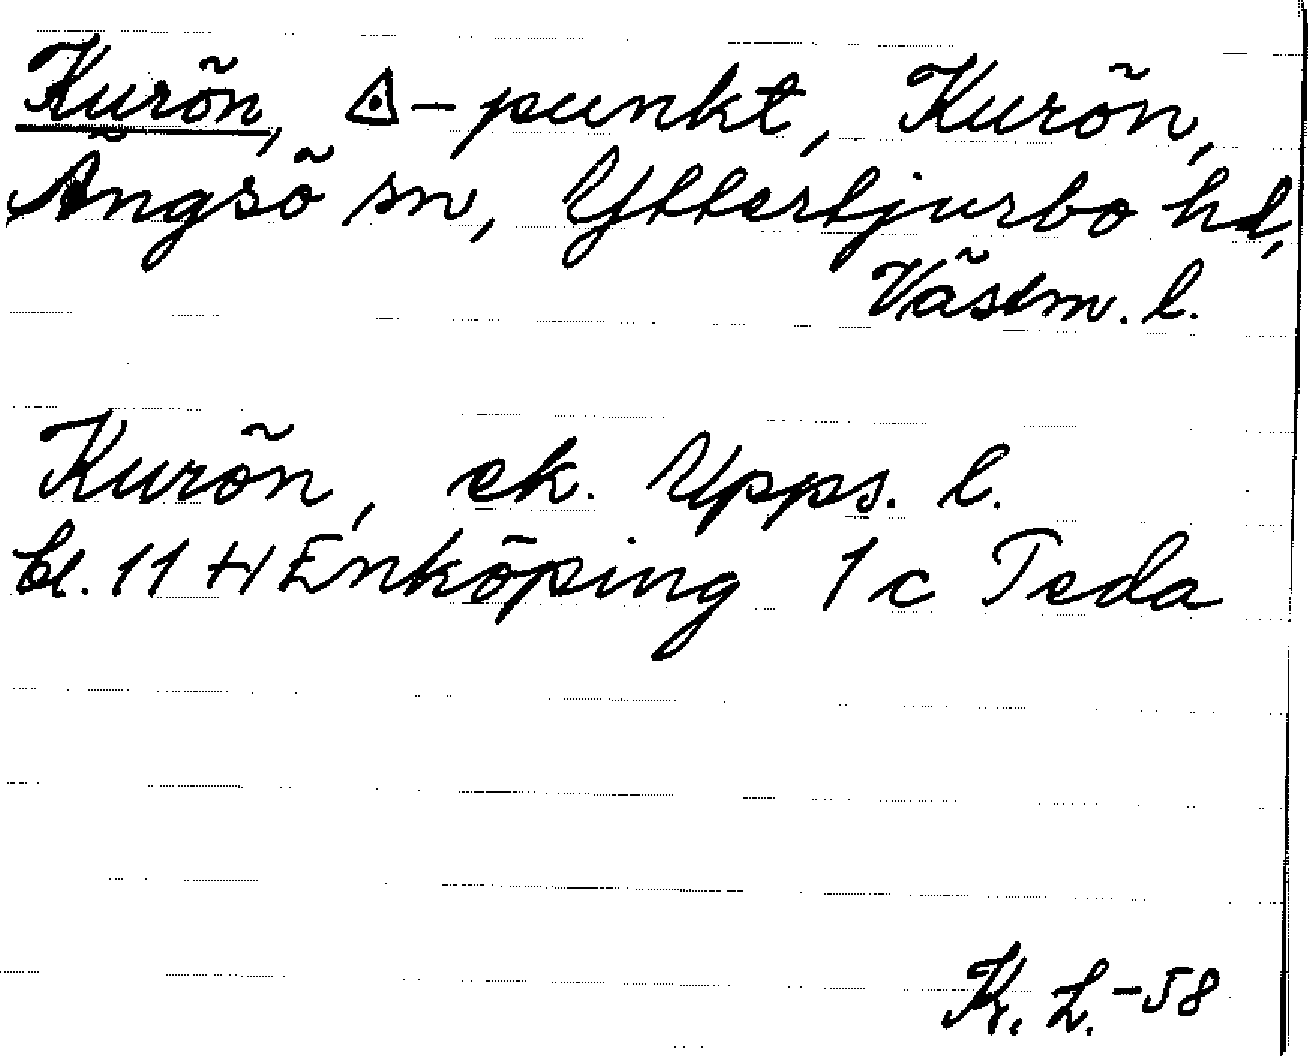 Kurön, △-punkt, Kurön,
Ängsö sn, Yttertjurbo hd,
Västm. l.
Kurön, ek. Upps. l.
bl. 11 H Enköping 1 c Teda
K. L. -58